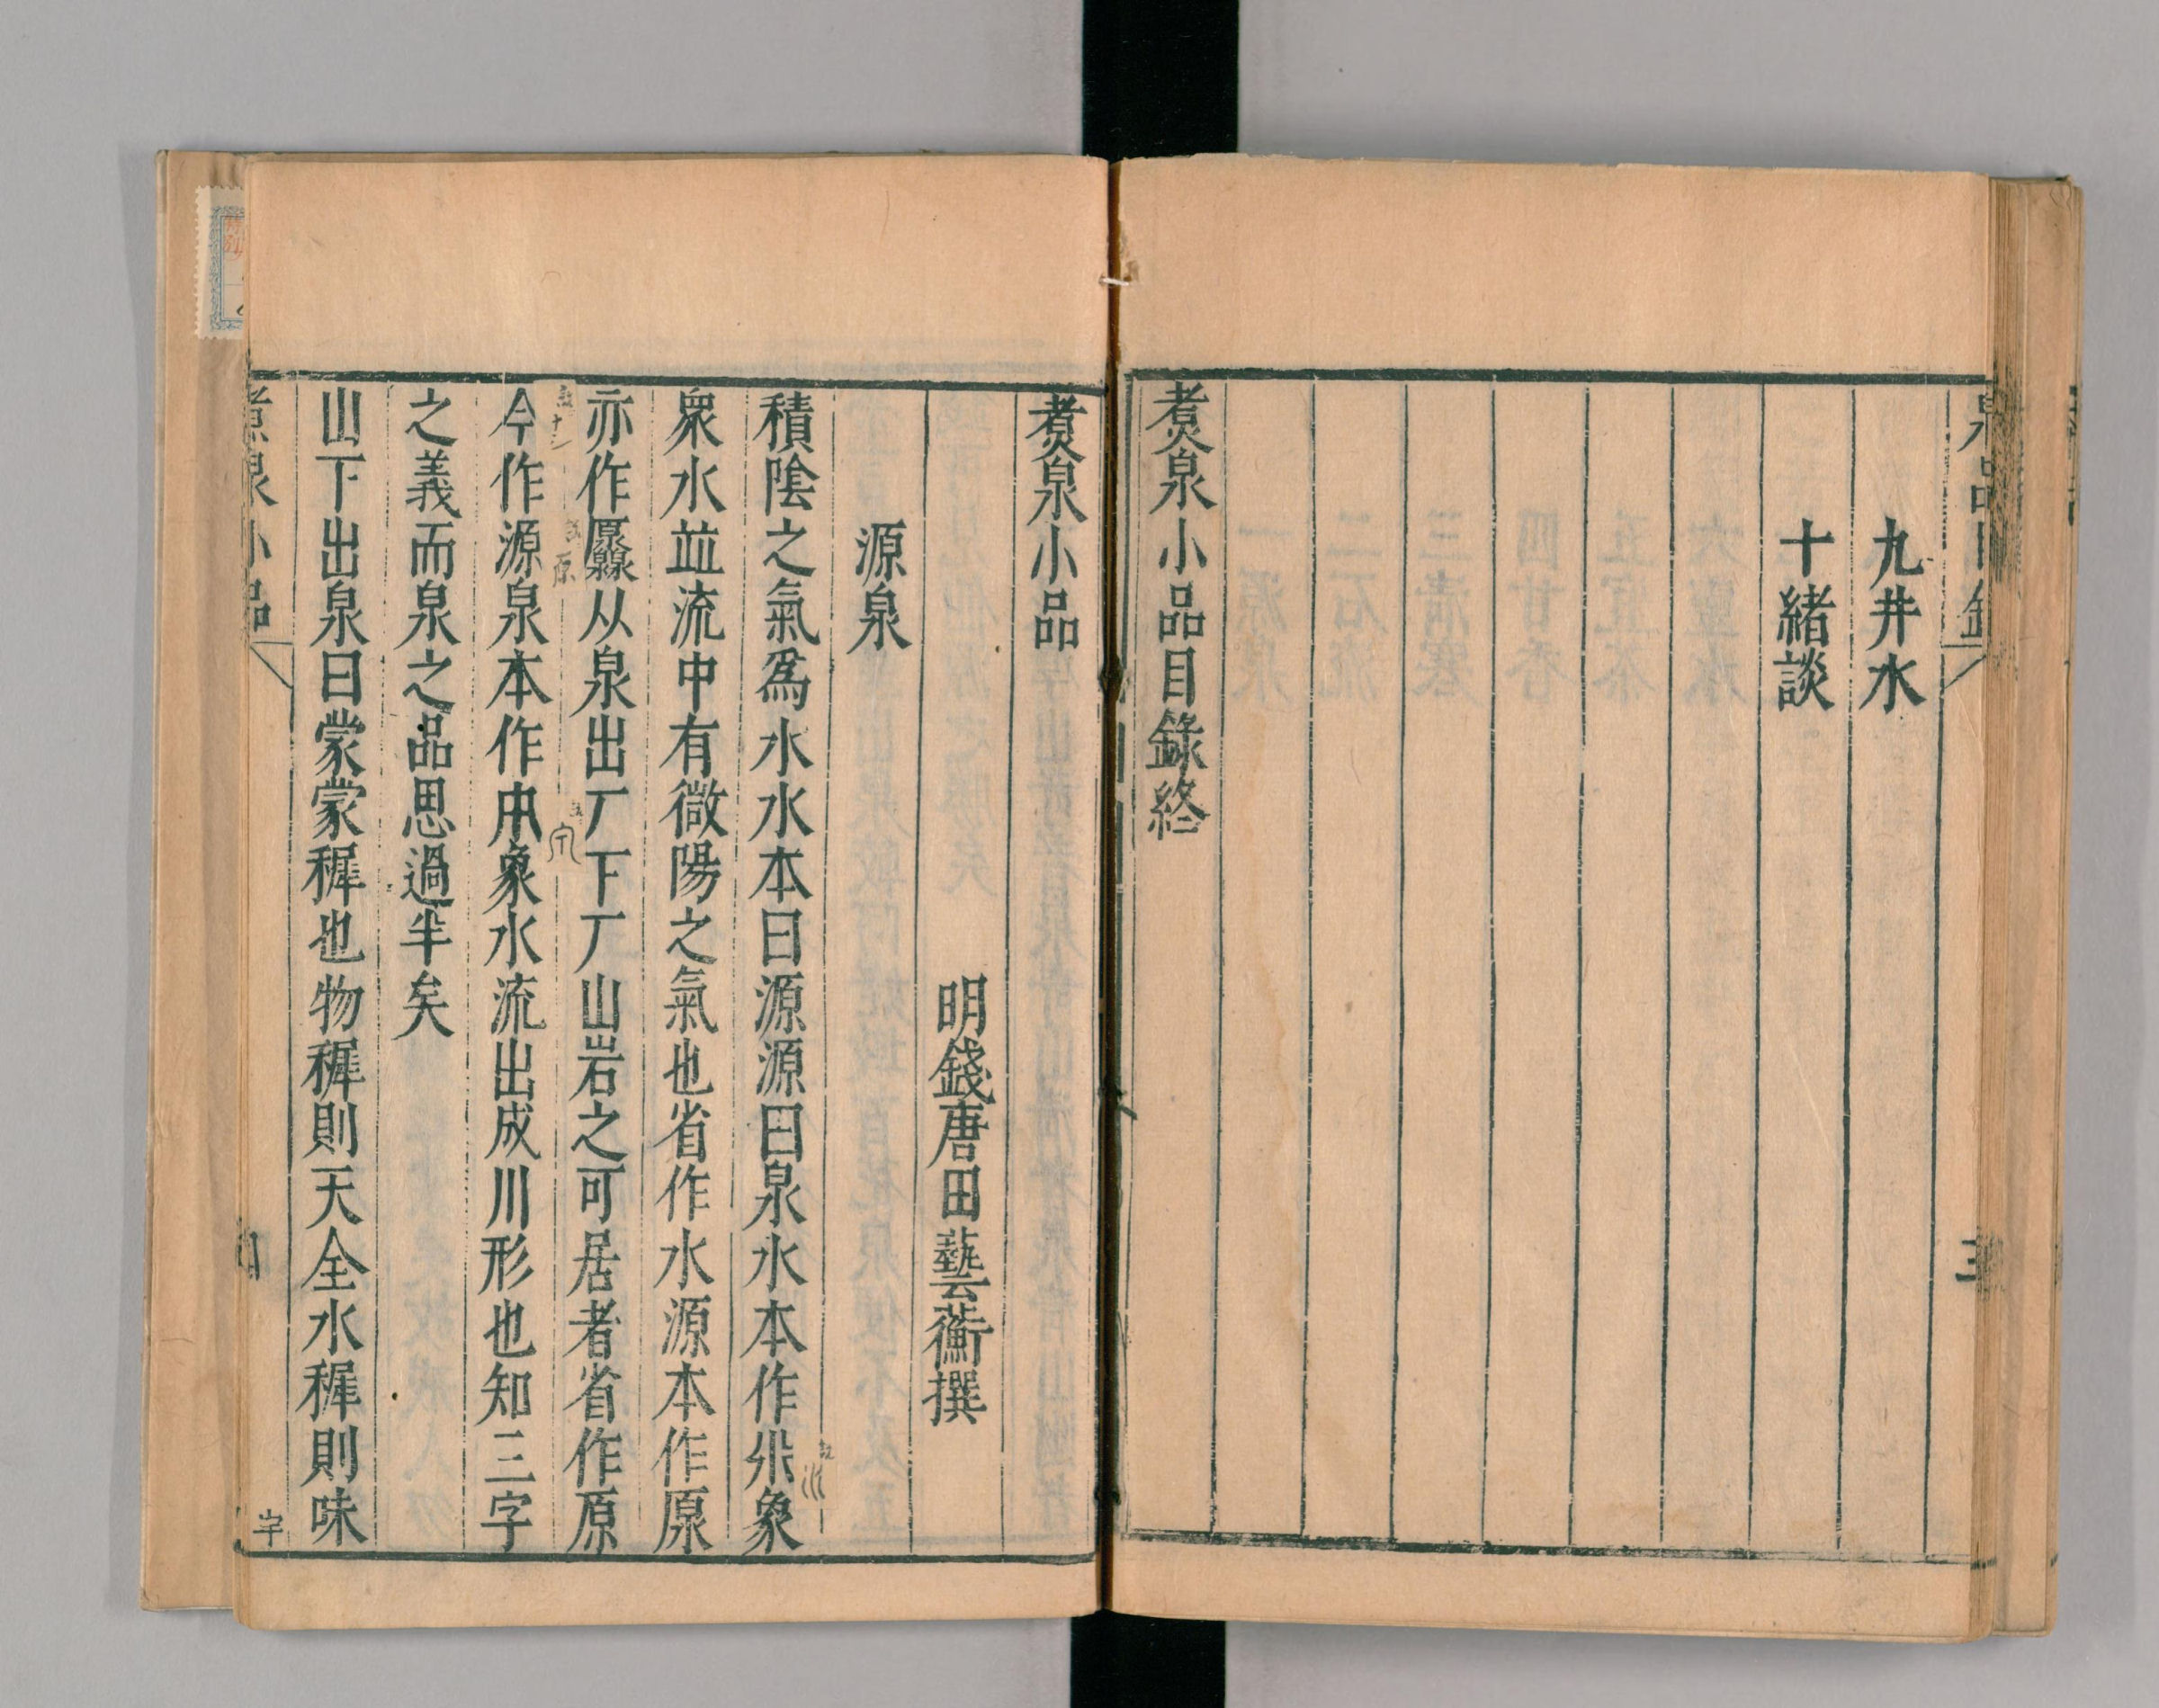 九井水
十緒談
煮泉小品目錄終
三
煮泉小品
明錢唐田藝蘅撰
源泉
積陰之氣爲水水本曰源源曰泉水本作𣱱象
衆水並流中有微陽之氣也省作水源本作原
亦作厵从泉出厂下厂山岩之可居者省作原
今作源泉本作𤽄象水流出成川形也知三字
之義而泉之品思過半矣
山下出泉曰蒙蒙穉也物穉則天全水穉則味
煮泉小品
四